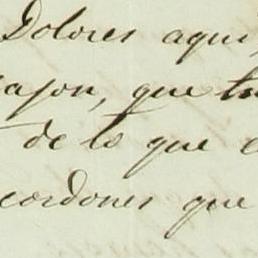 Dolores aqui,
ajon, que tu
de lo que
cordones que